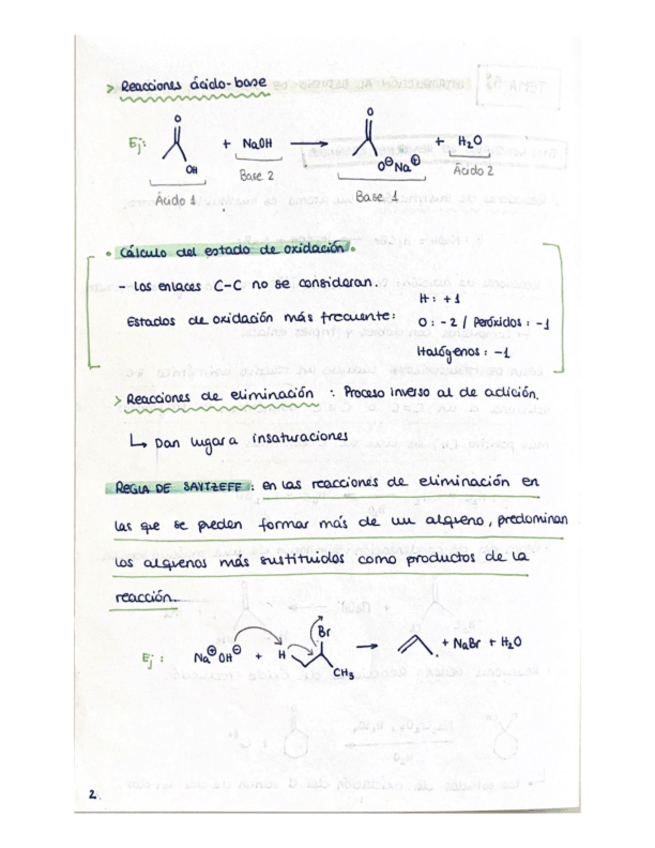 > Reacciones ácido-base
Ej: O OH + NaOH → O O⊖ Na⊕ + H2O
Ácido 1 Base 2 Base 1 Ácido 2
• Cálculo del estado de oxidación.
- Los enlaces C-C no se consideran.
H: +1
Estados de oxidación más frecuente: O: -2 / Peróxidos: -1
Halógenos: -1
> Reacciones de eliminación : Proceso inverso al de adición.
↳ Dan lugar a insaturaciones
REGLA DE SAYTZEFF: en las reacciones de eliminación en
las que se pueden formar más de un alqueno, predominan
los alquenos más sustituidos como productos de la
reacción.
Ej: Na⊕ OH⊖ + H Br CH3 → + NaBr + H2O
2.